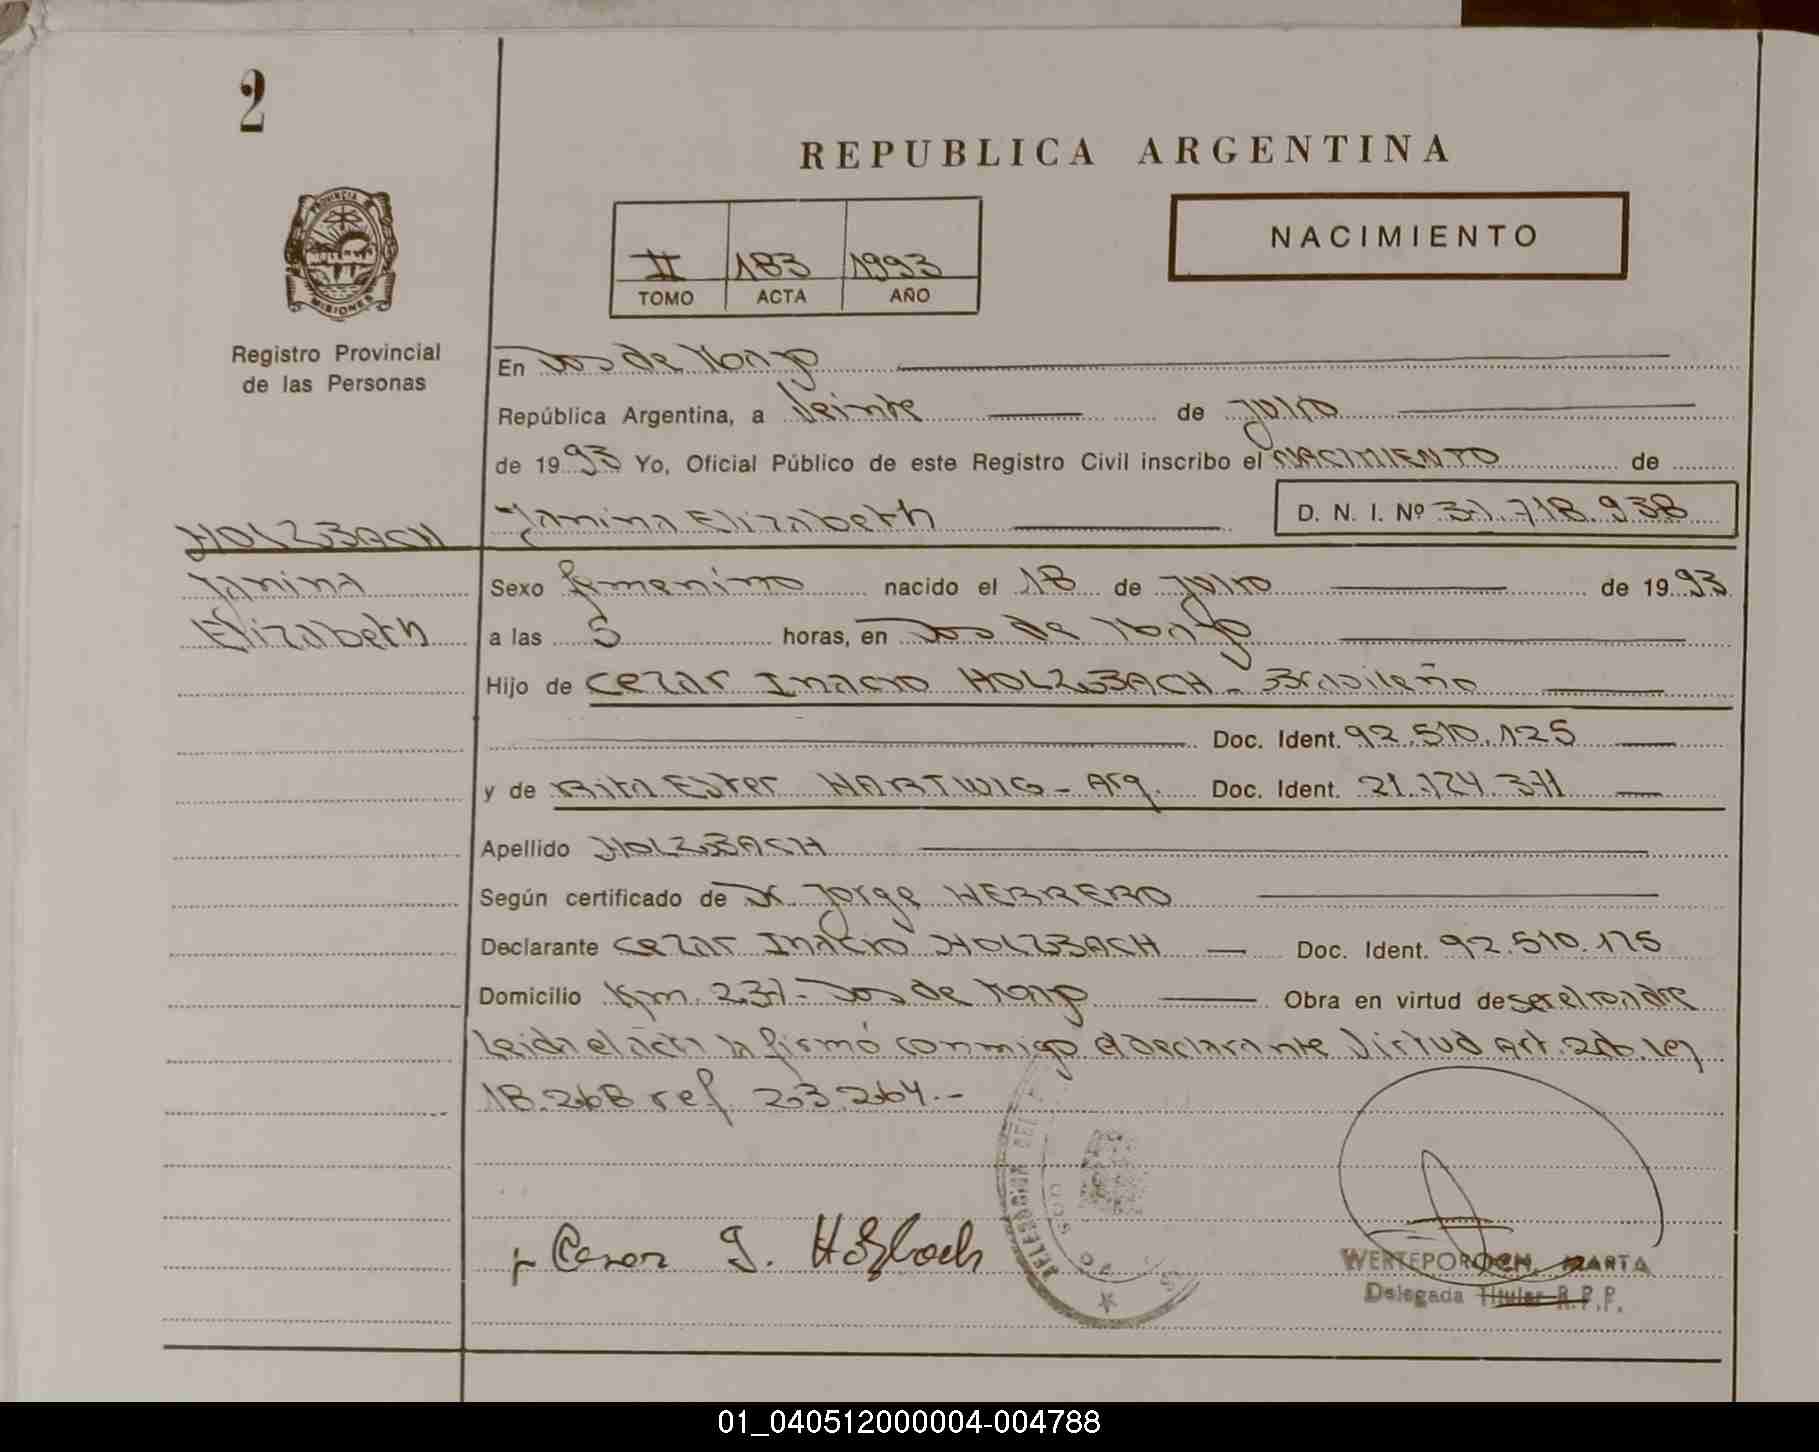 2
REPUBLICA ARGENTINA
PROVINCIA DE
MISIONES
NACIMIENTO
II 183 1993
TOMO ACTA AÑO
Registro Provincial
de las Personas
En Dos de Mayo
República Argentina, a Veinte de julio
de 1993 Yo, Oficial Público de este Registro Civil inscribo el NACIMIENTO de
Janina Elizabeth D. N. I. Nº 37.718.938
HOLZBACH
Janina
Elizabeth
Sexo femenino nacido el 18 de julio de 1993
a las 5 horas, en Dos de Mayo
Hijo de Cezar Inacio HOLZBACH - Brasileño
Doc. Ident. 92.510.125
y de Rita Ester HARTWIG - Arg. Doc. Ident. 21.724.371
Apellido HOLZBACH
Según certificado de Dr. Jorge HERRERO
Declarante Cezar Inacio HOLZBACH Doc. Ident. 92.510.125
Domicilio Km. 237 - Dos de Mayo Obra en virtud de ser el padre
Leida el acta la firmó conmigo el declarante Virtud Art. 26 ley
18.268 ref 23.264.-
DELEGACION DEL
DOS
Cezar I. Holzbach
WERTEPOROCH, MARTA
Delegada Titular R.P.P.
01_040512000004-004788